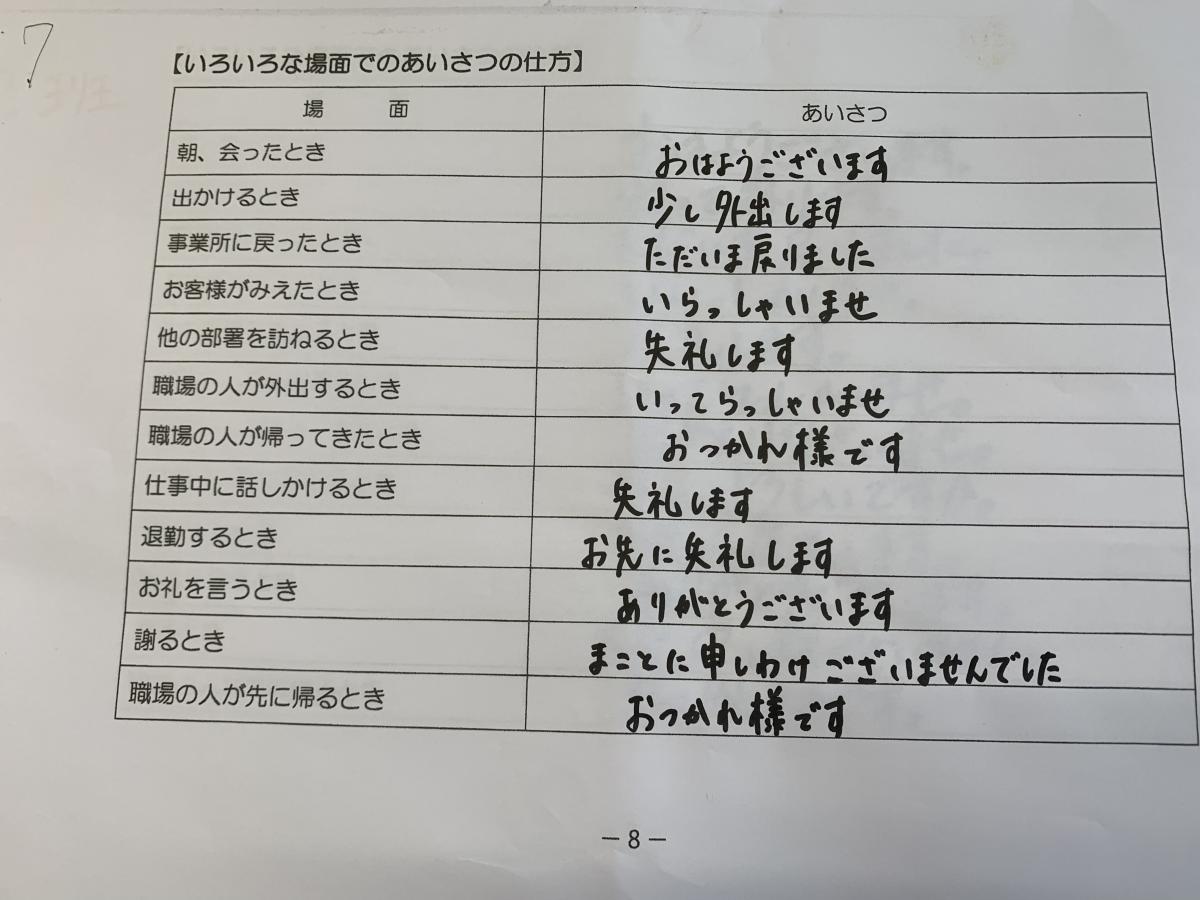 7
【いろいろな場面でのあいさつの仕方】
場　面　あいさつ
朝、会ったとき　おはようございます
出かけるとき　少し外出します
事業所に戻ったとき　ただいま戻りました
お客様がみえたとき　いらっしゃいませ
他の部署を訪ねるとき　失礼します
職場の人が外出するとき　いってらっしゃいませ
職場の人が帰ってきたとき　おつかれ様です
仕事中に話しかけるとき　失礼します
退勤するとき　お先に失礼します
お礼を言うとき　ありがとうございます
謝るとき　まことに申しわけございませんでした
職場の人が先に帰るとき　おつかれ様です
－8－